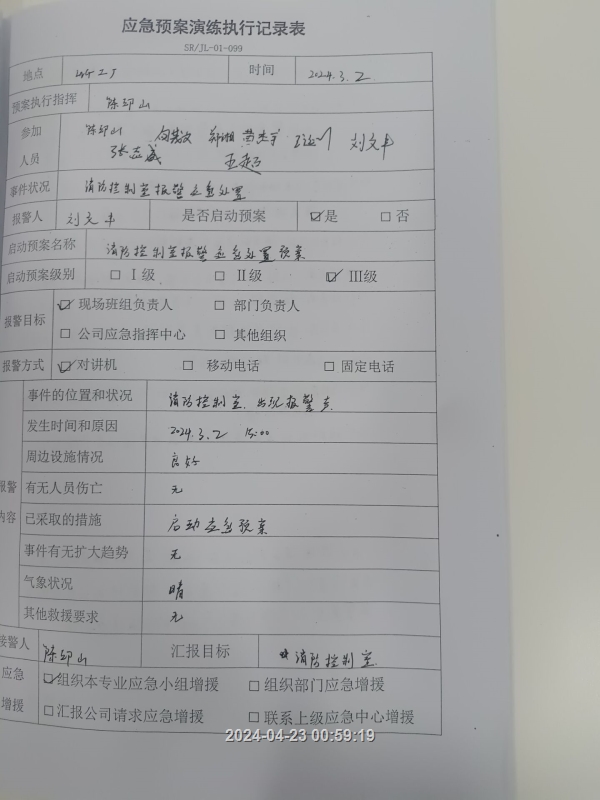 应急预案演练执行记录表
SR/JL-01-099
地点 时间 2024.3.2
预案执行指挥 陈印山
参加 陈印山 刘文丰
人员 张志威 王超
事件状况 消防控制室报警应急处置
报警人 刘文丰 是否启动预案 ☑是 □否
启动预案名称 消防控制室报警应急处置预案
启动预案级别 □Ⅰ级 □Ⅱ级 ☑Ⅲ级
报警目标 ☑现场班组负责人 □部门负责人
□公司应急指挥中心 □其他组织
报警方式 ☑对讲机 □移动电话 □固定电话
事件的位置和状况 消防控制室,出现报警声
发生时间和原因 2024.3.2 15:00
周边设施情况 良好
报警 有无人员伤亡 无
内容 已采取的措施 启动应急预案
事件有无扩大趋势 无
气象状况 晴
其他救援要求 无
接警人 陈印山 汇报目标 消防控制室
应急 ☑组织本专业应急小组增援 □组织部门应急增援
增援 □汇报公司请求应急增援 □联系上级应急中心增援
2024-04-23 00:59:19